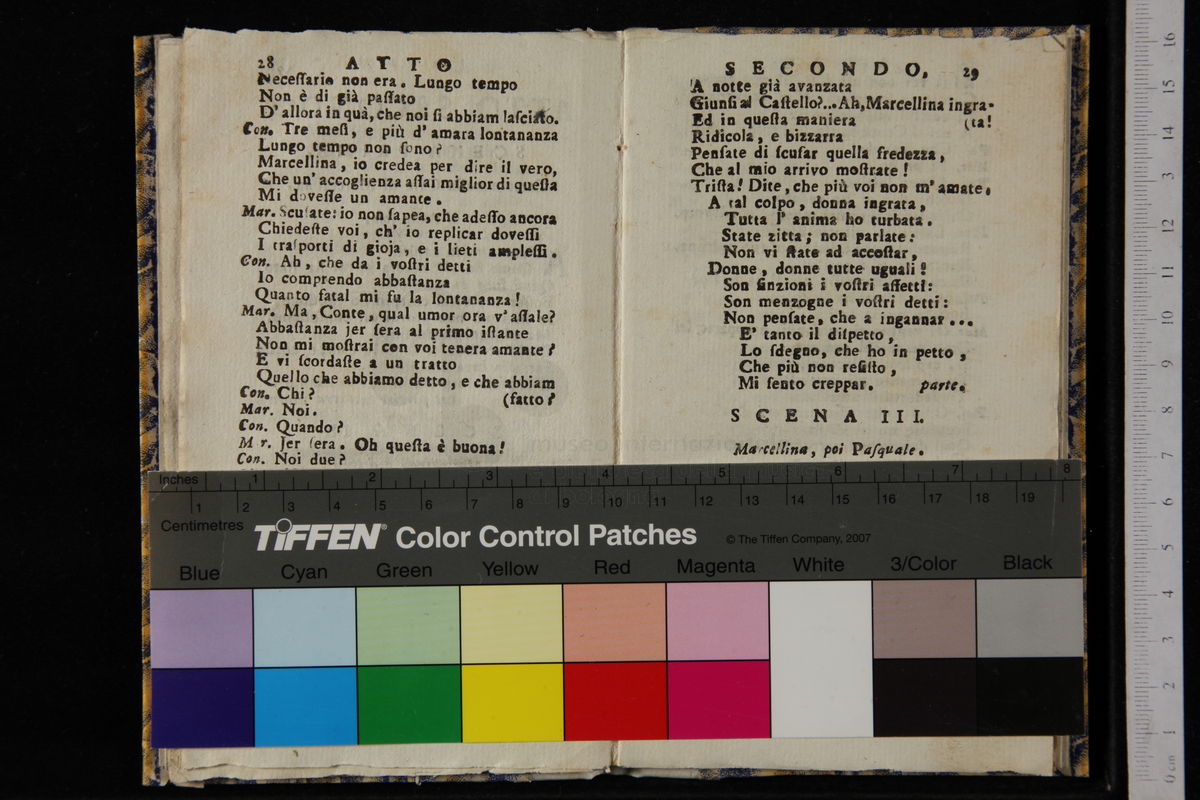 28 ATTO
Neceſſario non era. Lungo tempo
Non è di già paſſato
D'allora in quà, che noi ſi abbiam laſciato.
Con. Tre meſi, e più d'amara lontananza
Lungo tempo non ſono?
Marcellina, io credea per dire il vero,
Che un'accoglienza aſſai miglior di queſta
Mi doveſſe un amante.
Mar. Scuſate: io non ſapea, che adeſſo ancora
Chiedeſte voi, ch'io replicar doveſſi
I traſporti di gioja, e i lieti ampleſſi.
Con. Ah, che da i voſtri detti
Io comprendo abbaſtanza
Quanto fatal mi fu la lontananza!
Mar. Ma, Conte, qual umor ora v'aſſale?
Abbaſtanza jer ſera al primo iſtante
Non mi moſtrai con voi tenera amante?
E vi ſcordaſte a un tratto
Quello che abbiamo detto, e che abbiam
Con. Chi? (fatto?
Mar. Noi.
Con. Quando?
M r. Jer ſera. Oh queſta è buona!
Con. Noi due?
SECONDO. 29
A notte già avanzata
Giunſi al Caſtello?...Ah, Marcellina ingra-
Ed in queſta maniera (ta!
Ridicola, e bizzarra
Penſate di ſcuſar quella fredezza,
Che al mio arrivo moſtrate!
Triſta! Dite, che più voi non m'amate.
A tal colpo, donna ingrata,
Tutta l'anima ho turbata.
State zitta; non parlate:
Non vi ſtate ad accoſtar,
Donne, donne tutte uguali!
Son finzioni i voſtri affetti:
Son menzogne i voſtri detti:
Non penſate, che a ingannar...
E' tanto il diſpetto,
Lo ſdegno, che ho in petto,
Che più non reſiſto,
Mi ſento creppar. parte.
SCENA III.
Marcellina, poi Paſquale.
Inches 1 2 3 4 5 6 7 8
1 2 3 4 5 6 7 8 9 10 11 12 13 14 15 16 17 18 19
Centimetres
TIFFEN® Color Control Patches © The Tiffen Company, 2007
Blue Cyan Green Yellow Red Magenta White 3/Color Black
16
15
14
13
12
11
10
9
8
7
6
5
4
3
2
1
0 cm